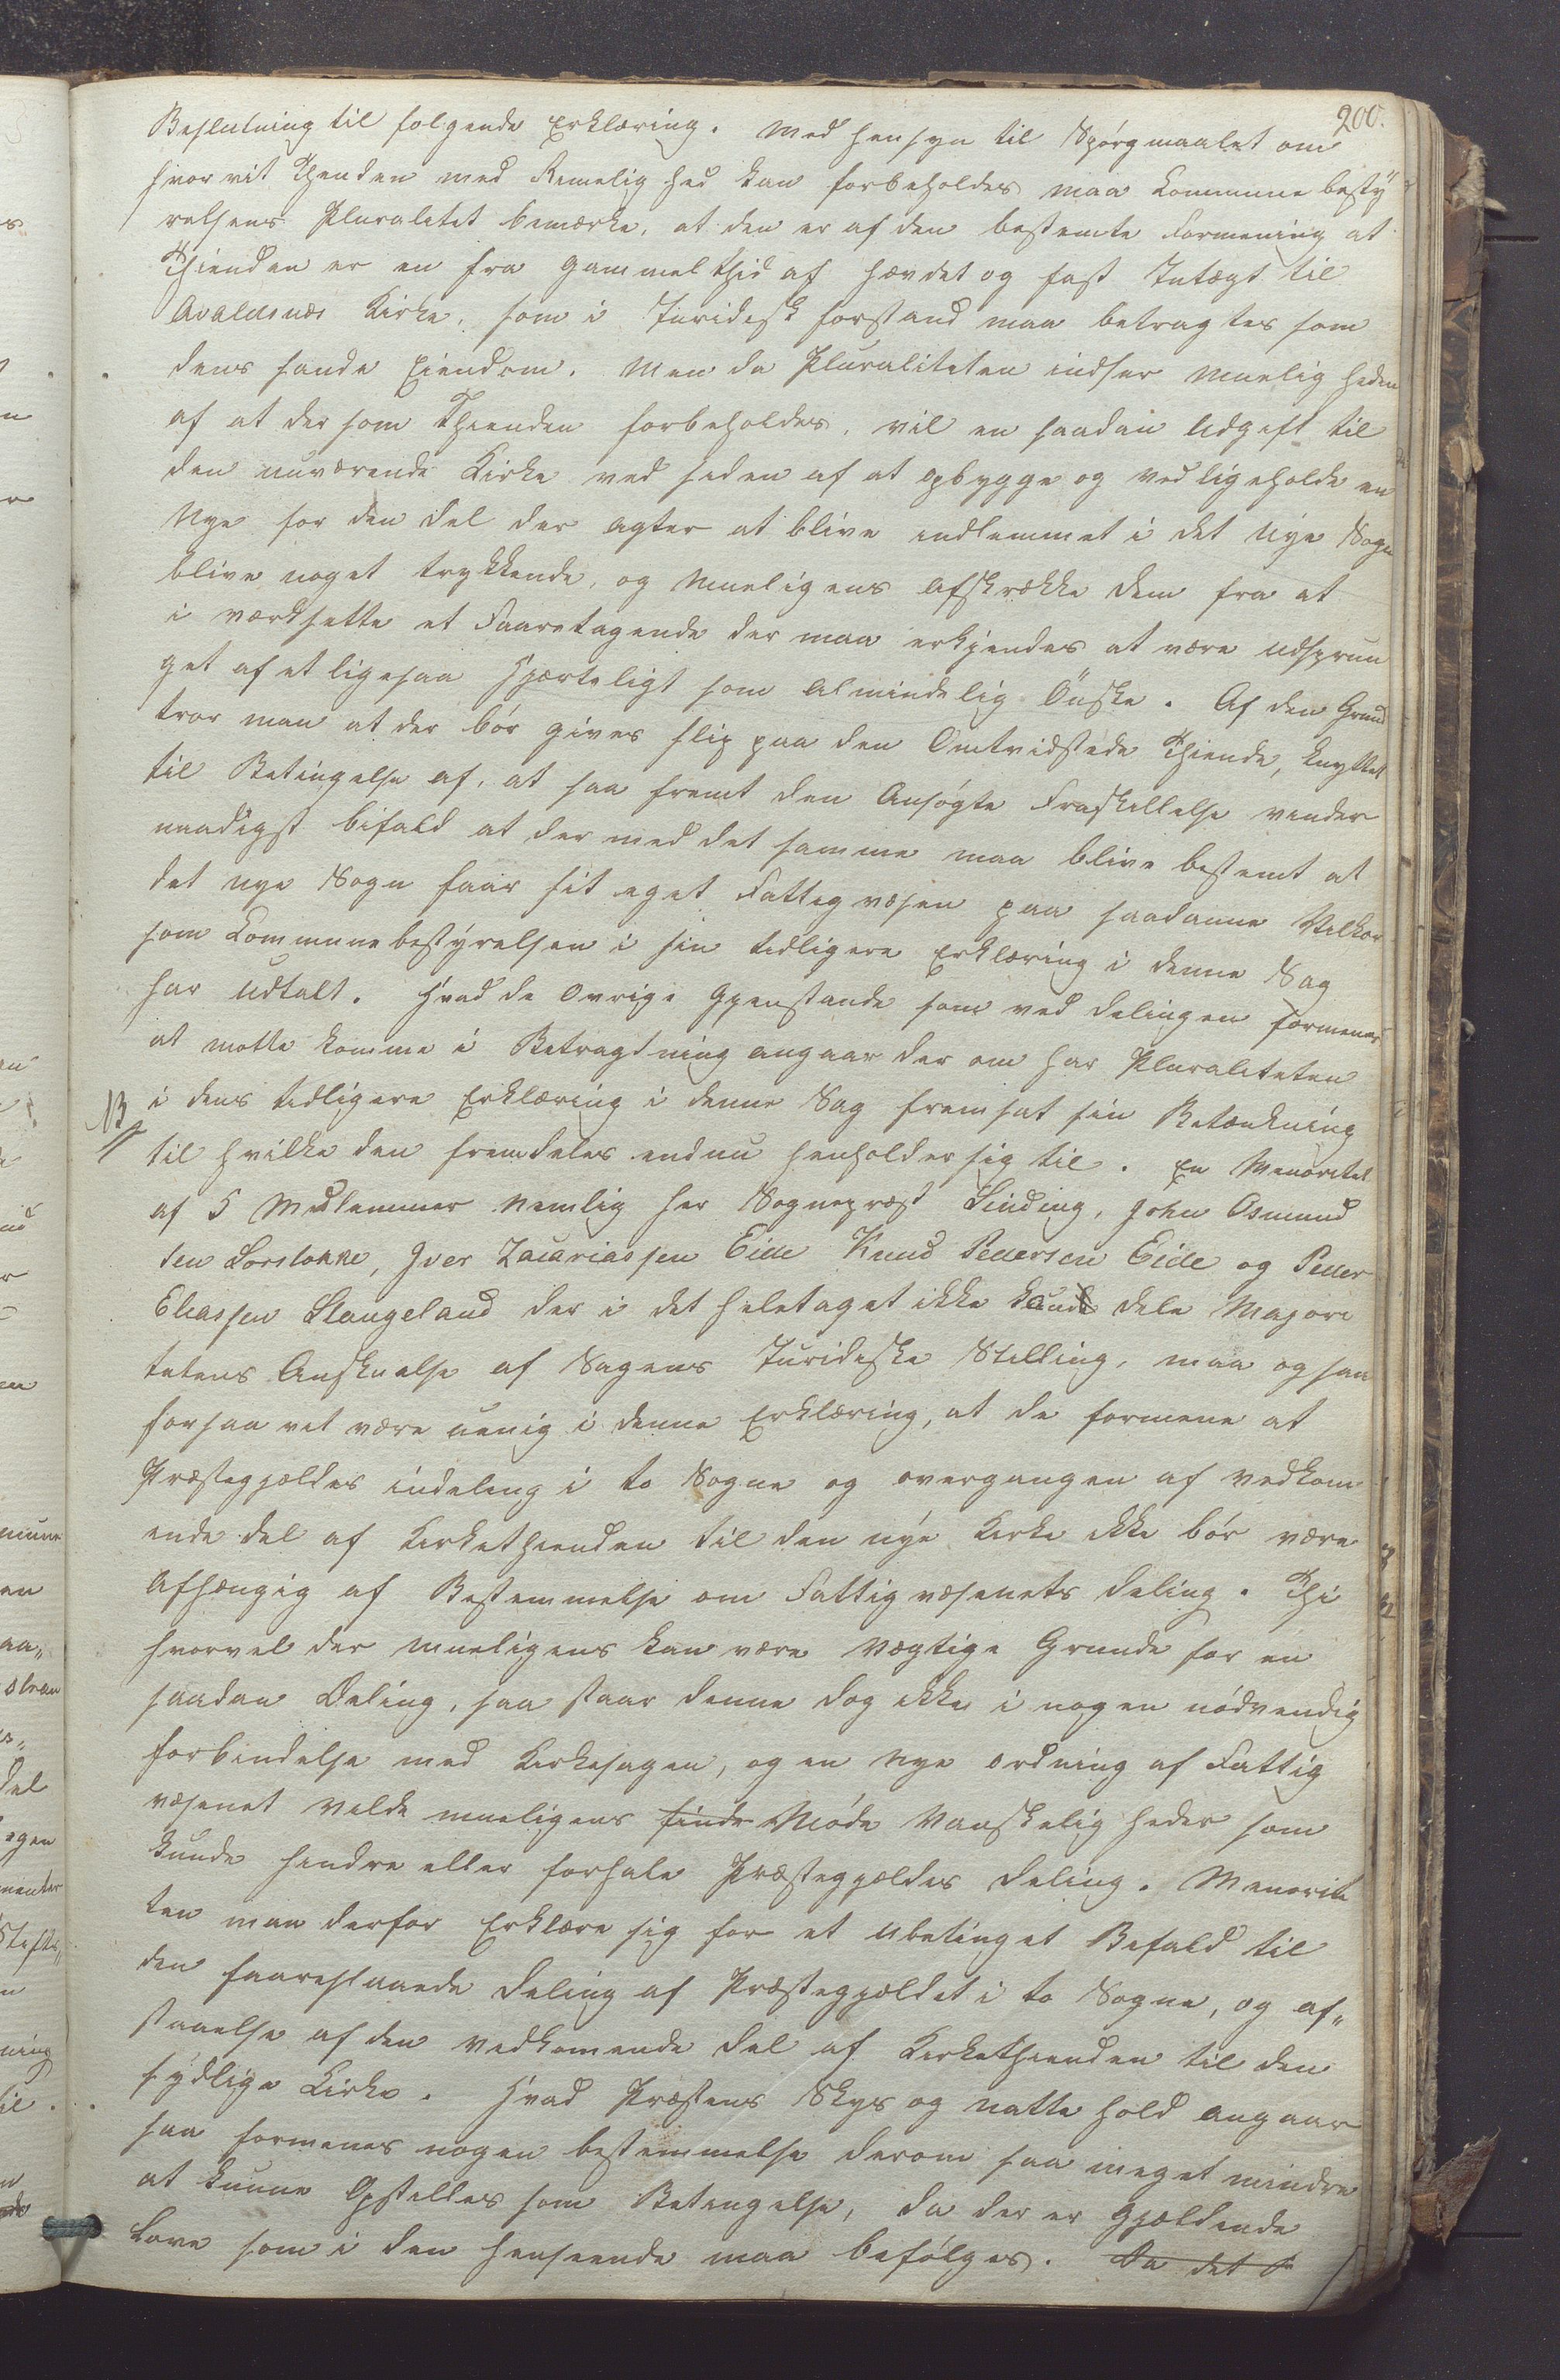 200.
Beslutning til følgende Erklæring. Med Hensyn til Spørgmaalet om
hvorvit Thienden med Rimelighed kan forbeholdes maa Commune besty
relsens Pluralitet bemærke, at den er af den bestemte Formening at
Thienden er en fra Gammel thid af hævdet og fast Intægt til
Avaldsnæs Kirke, som i Juridisk forstand maa betragtes som
dens sande Eiendom. Men da Pluraliteten indser Muelig heden
af at der som Thienden forbeholdes, vil en saadan Udgift til
den nuværende Kirke ved siden af at opbygge og vedligeholde en
Nye for den del der agter at blive indlemmet i det nye Sogn
blive noget trykkende, og Mueligens Afskrække dem fra at
i værksette et Faaretagende der maa erkjendes at være udsprun
get af et ligesaa Hjærteligt som almindelig Ønske. Af den Grund
tror man at der bør gives slip paa den Omtvidstede Thiende, knyttet
til Betingelse af, at saa fremt den Ansøgte Fraskillelse vinder
naadigst bifald at der med det samme maa blive bestemt at
det nye Sogn faar sit eget Fattigvæsen paa saadanne Vilkor
som Communebestyrelsen i sin tidligere Erklæring i denne Sag
har udtalt. Hvad de Ovrige Gjenstande som ved delingen formenes
at motte komme i Betragtning angaar der om har Pluraliteten
NB i dens tidligere Erklæring i denne Sag fremsat sin Betænkning
til hvilke den fremdeles endnu henholder sig til. En Menoritet
af 5 Medlemmer nemlig her Sognepræst Sinding, John Osmund
sen Sorstokke, Iver Zacariassen Eide Knud Pedersen Eide og Peder
Eliassen Stangeland der i det heletaget ikke kunde dele Majori
tetens Anskuelse af Sagens Juridiske Stilling, maa og saa
forsaa vet være uenig i denne Erklæring, at de formene at
Præstegjældes indeling i to Sogne og overgangen af vedkom
ende del af Kirkethienden til den nye Kirke ikke bør være
Afhængig af Bestemmelse om Fattigvæsenets deling. Thi
hvorvel der mueligens kan være Vægtige Grunde for en
saadan Deling, saa staar denne dog ikke i nogen nødvendig
forbindelse med Kirkesagen, og en nye ordning af Fattig
væsenet vilde mueligens finde Møde Vanskelig heder som
kunde hindre eller forhale Præstegjældes deling. Menorite
ten maa derfor Erklære sig for et ubetinget Befald til
den faareslaaede deling af Præstegjældet i to Sogne, og af„
staaelse af den vedkomende del af Kirkethienden til den
sydlige Kirke. Hvad Præstens Skys og natte hold angaar
saa formenes nogen bestemmelse derom saa meget mindre
at kunne Opstilles som Betingelse, da der er Gjældende
Love som i den henseende maa befølges. Da det